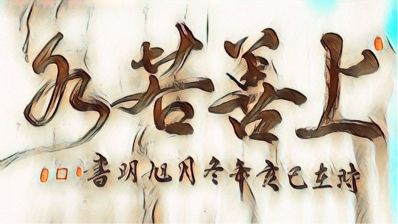 上善若水
时在己亥年冬月旭明書